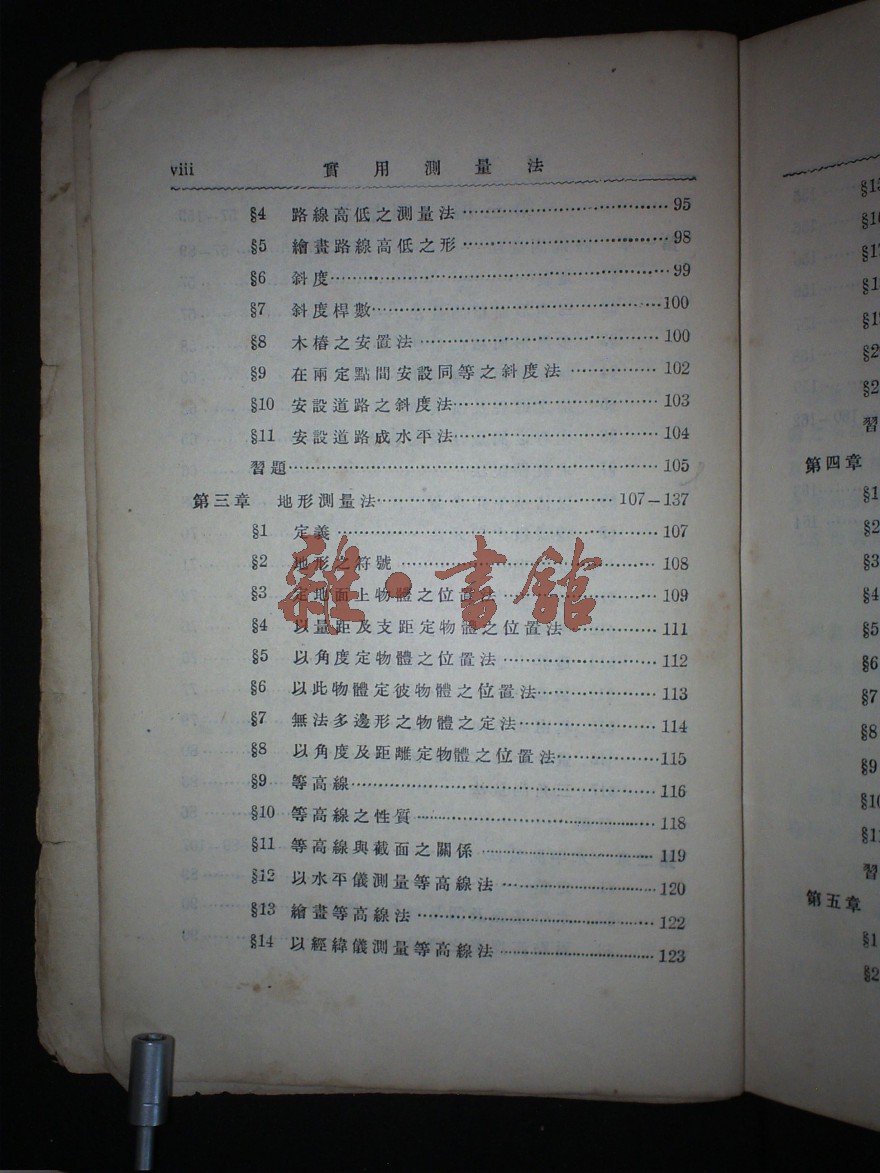 viii 實用測量法
§4 路線高低之測量法 95
§5 繪畫路線高低之形 98
§6 斜度 99
§7 斜度桿數 100
§8 木樁之安置法 100
§9 在兩定點間安設同等之斜度法 102
§10 安設道路之斜度法 103
§11 安設道路成水平法 104
習題 105
第三章 地形測量法 107—137
§1 定義 107
§2 地形之符號 108
§3 定地面上物體之位置法 109
§4 以量距及支距定物體之位置法 111
§5 以角度定物體之位置法 112
§6 以此物體定彼物體之位置法 113
§7 無法多邊形之物體之定法 114
§8 以角度及距離定物體之位置法 115
§9 等高線 116
§10 等高線之性質 118
§11 等高線與截面之關係 119
§12 以水平儀測量等高線法 120
§13 繪畫等高線法 122
§14 以經緯儀測量等高線法 123
雜·書館
第四章
§1
§2
§3
§4
§5
§6
§7
§8
§9
§10
§11
習
第五章
§1
§2